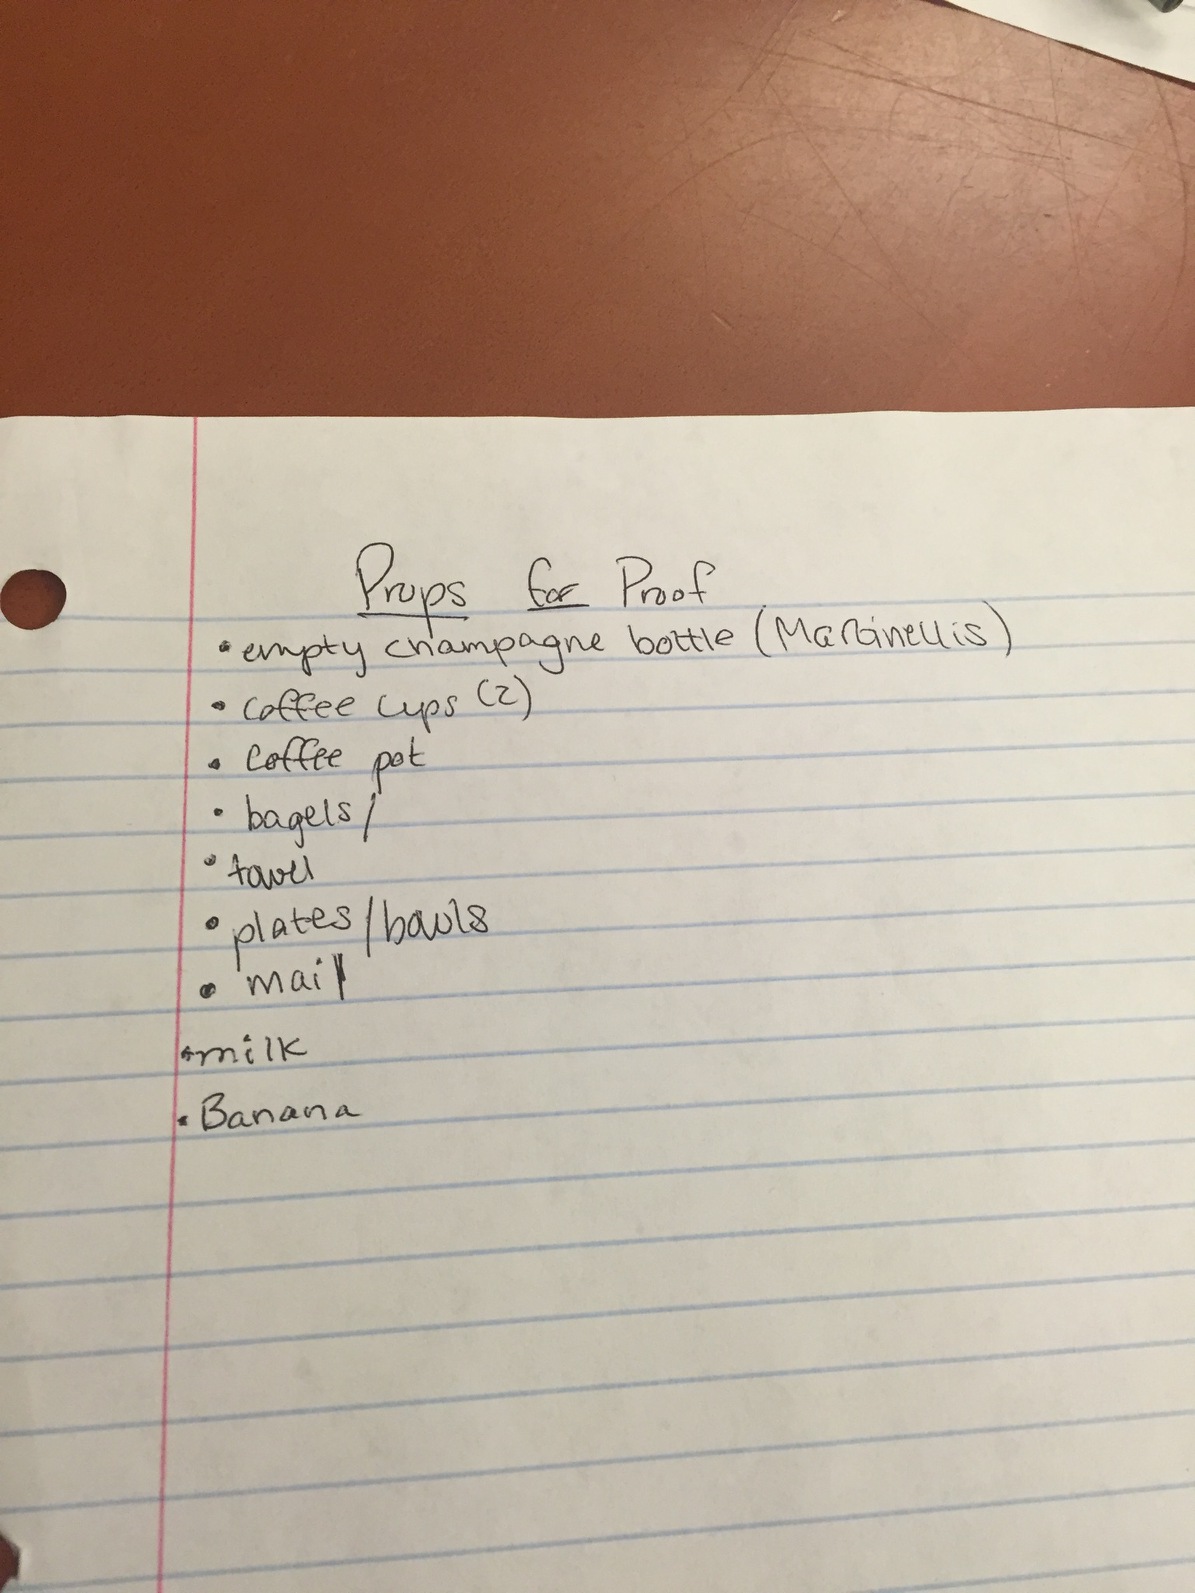 Props for Proof
• empty champagne bottle (Martinellis)
• coffee cups (2)
• Coffee pot
• bagels/
• towel
• plates/bowls
• mail
• milk
• Banana